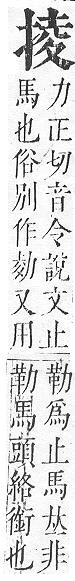 掕
力正切音令說文止
馬也俗別作又用
勒為止馬𠀤非
勒馬頭絡銜也